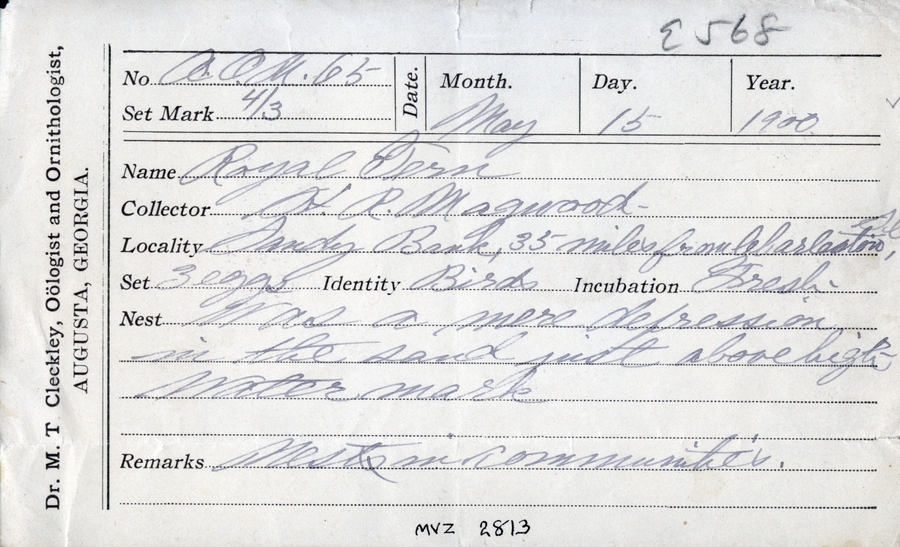 E 568
Dr. M. T Cleckley, Oölogist and Ornithologist,
AUGUSTA, GEORGIA.
No. 65
Set Mark 4/3
Date. Month. Day. Year.
May 15 1900
Name Royal Tern
Collector H. R. Magwood
Locality Sandy Bank, 35 miles from Charleston,
Set 3 eggs Identity Birds Incubation Fresh.
Nest Was a mere depression
in the sand just above high
water mark
Remarks Nests in communities.
MVZ 2813